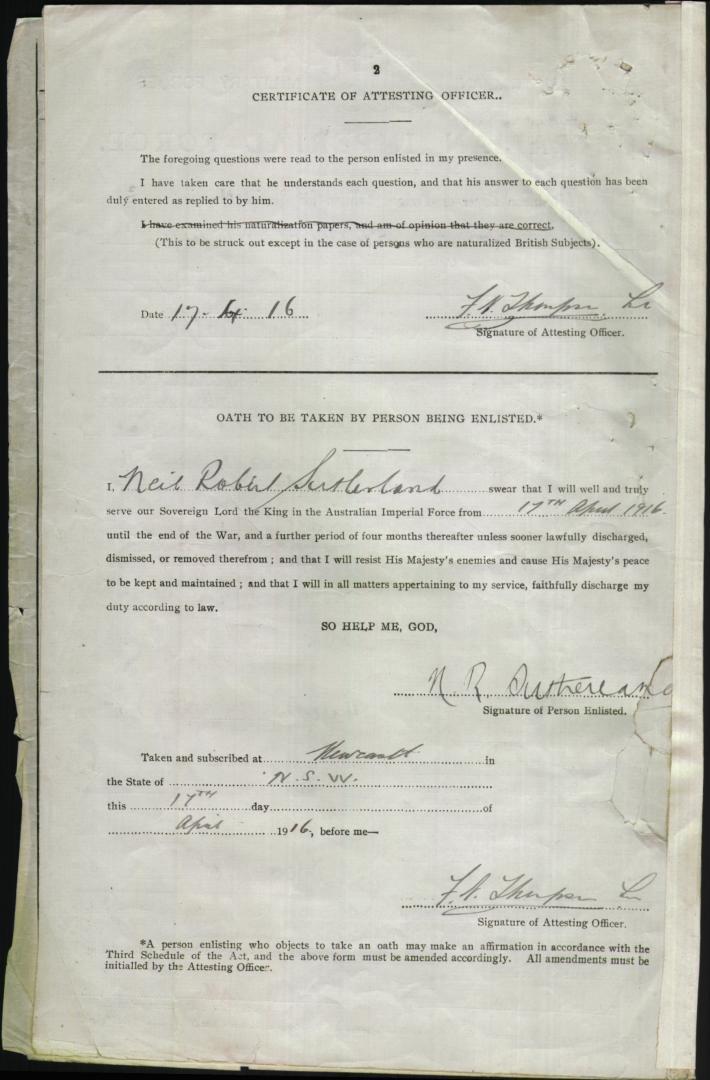 2
CERTIFICATE OF ATTESTING OFFICER..
The foregoing questions were read to the person enlisted in my presence.
I have taken care that he understands each question, and that his answer to each question has been
duly entered as replied to by him.
I have examined his naturalization papers, and am of opinion that they are correct.
(This to be struck out except in the case of persons who are naturalized British Subjects).
Date 17-4-16
F. W. Thompson Lt
Signature of Attesting Officer.
OATH TO BE TAKEN BY PERSON BEING ENLISTED.*
I, Neil Robert Sutherland swear that I will well and truly
serve our Sovereign Lord the King in the Australian Imperial Force from 17TH April 1916
until the end of the War, and a further period of four months thereafter unless sooner lawfully discharged,
dismissed, or removed therefrom ; and that I will resist His Majesty's enemies and cause His Majesty's peace
to be kept and maintained ; and that I will in all matters appertaining to my service, faithfully discharge my
duty according to law.
SO HELP ME, GOD,
N. R. Sutherland
Signature of Person Enlisted.
Taken and subscribed at Newcastle in
the State of N. S. W.
this 17TH day of
April 1916, before me—
F. W. Thompson Lt
Signature of Attesting Officer.
*A person enlisting who objects to take an oath may make an affirmation in accordance with the
Third Schedule of the Act, and the above form must be amended accordingly. All amendments must be
initialled by the Attesting Officer.